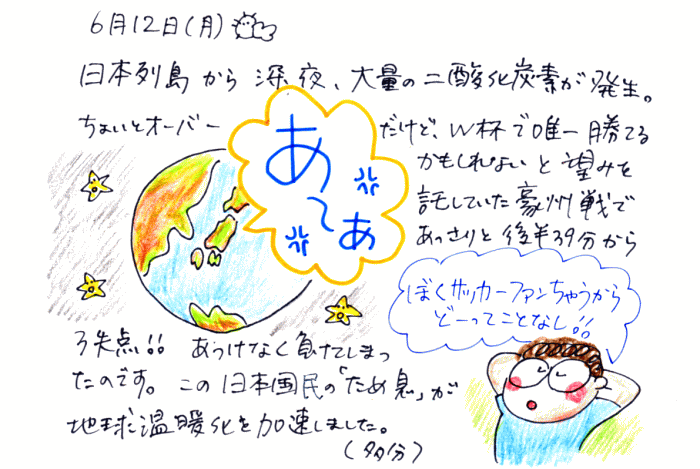 6月12日(月)
日本列島から深夜、大量の二酸化炭素が発生。
ちょいとオーバーだけど、W杯で唯一勝てる
かもしれないと望みを
託していた豪州戦で
あっさりと後半39分から
3失点!! あっけなく負けてしまっ
たのです。この日本国民の「ため息」が
地球温暖化を加速しました。
(多分)
あ〜あ
ぼくサッカーファンちゃうから
どーってことなし!!